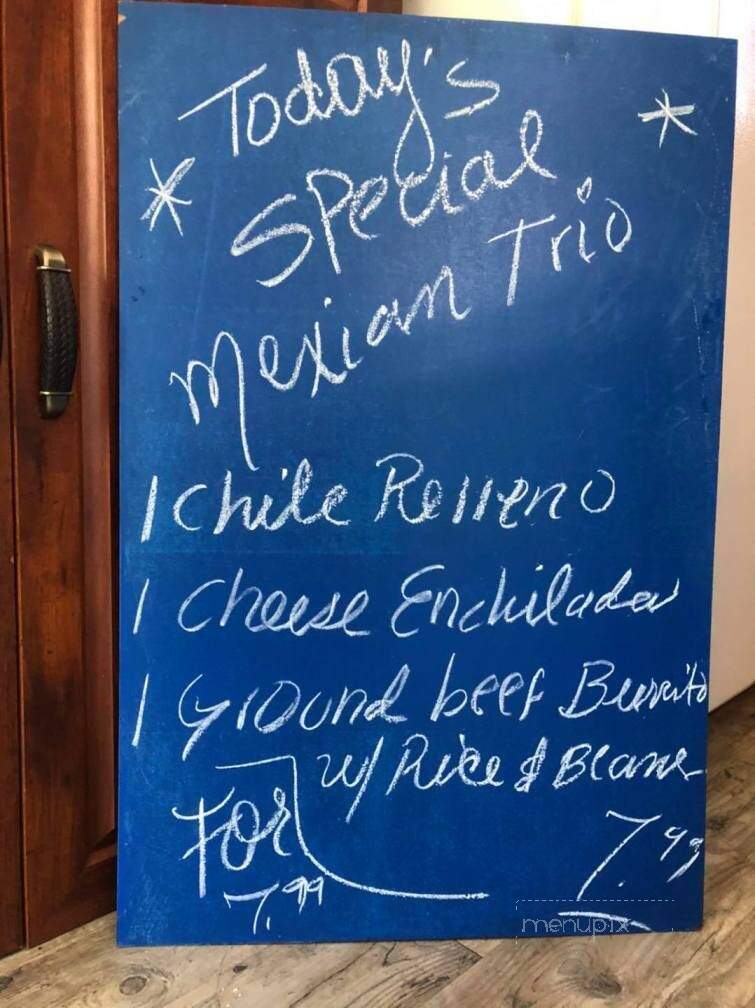 Today's
* Special *
Mexian Trio
1 Chile Relleno
1 Cheese Enchilada
1 Ground beef Burrito
w/ Rice & Beans
For
7.99
7.49
menupix